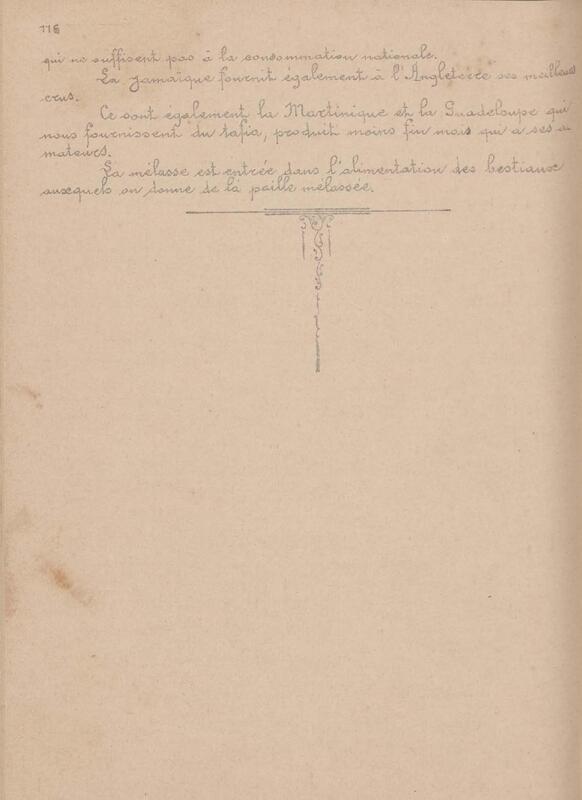 116
qui ne suffisent pas à la consommation nationale.
La Jamaïque fournit également à l'Angleterre ses meilleurs
crus.
Ce sont également la Martinique et la Guadeloupe qui
nous fournissent du tafia, produit moins fin mais qui a ses a
mateurs.
La mélasse est entrée dans l'alimentation des bestiaux
auxquels on donne de la paille mélassée.